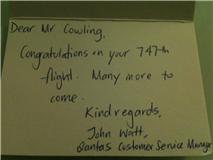 Dear Mr Cowling,
Congratulations on your 747th
flight. Many more to
come.
Kind regards,
John Watt,
Qantas Customer Service Manager